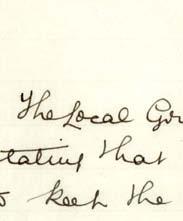 The Local Gov
stating that
to keep the